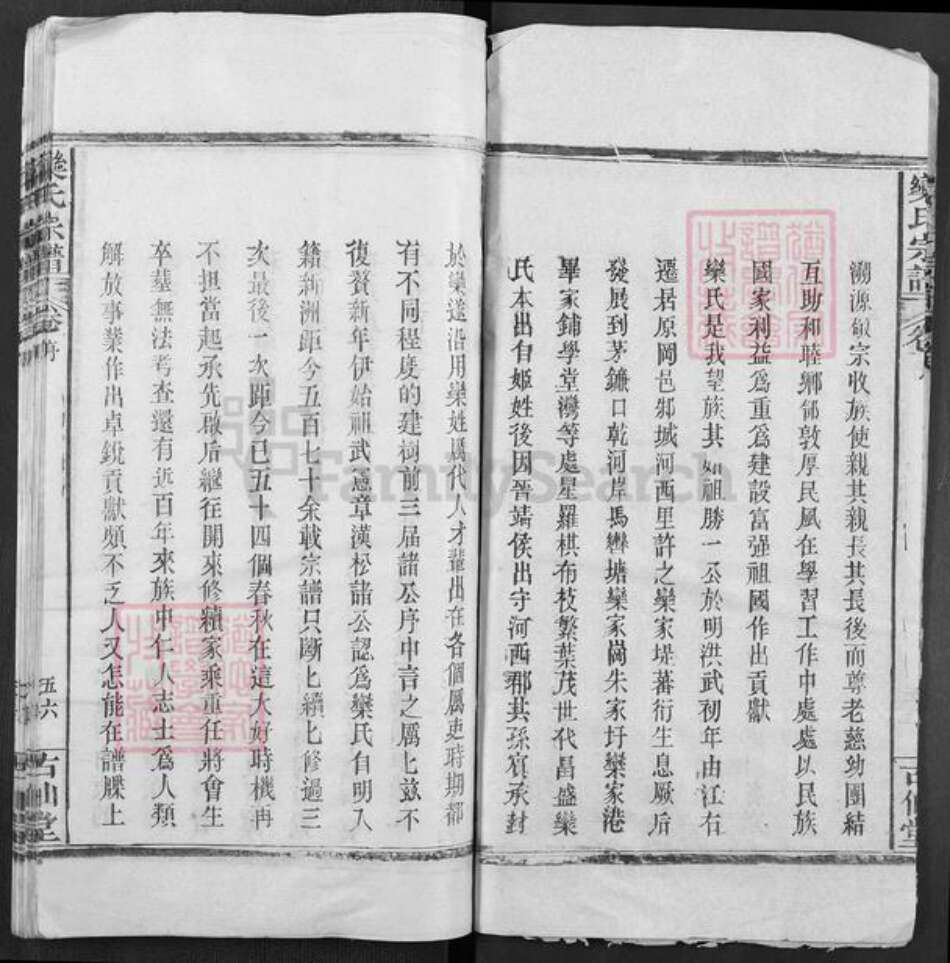 欒氏宗譜
溯源敬宗收族使親其親長其長後而尊老慈幼團結
互助和睦鄉鄰敦厚民風在學習工作中處處以民族
國家利益爲重爲建設富强祖國作出貢獻
欒氏是我望族其始祖勝一公於明洪武初年由江右
遷居原岡邑邾城河西里許之欒家堤蕃衍生息厥后
發展到茅鐮口乾河岸馬轡塘欒家崗朱家圩欒家港
畢家鋪學堂灣等處星羅棋布枝繁葉茂世代昌盛欒
氏本出自姬姓後因晉靖侯出守河西郡其孫賓承封
於欒遂沿用欒姓厲代人才輩出在各個厲吏時期都
有不同程度的建樹前三届諸公序中言之厲匕兹不
復贅新年伊始祖武憲章漢松諸公認爲欒氏自明入
籍新洲距今五百七十余載宗譜只斷匕續匕修過三
次最後一次距今已五十四個春秋在這大好時機再
不担當起承先啟后繼往開來修續家乘重任將會生
卒墓無法考查還有近百年來族中仁人志士爲人類
解放事業作出卓銳貢獻頗不乏人又怎能在譜牒上
欒氏宗譜
卷首
五六
古仙堂
古仙堂
FamilySearch